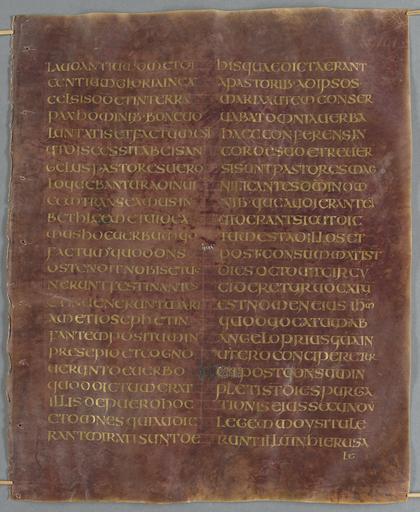 LAUDANTIUM DM ET DI
CENTIUM GLORIA IN EX
CELSIS DO ET IN TERRA
PAX HOMINIB· BONAE UO
LUNTATIS ET FACTUM EST
UT DISCESSIT AB EIS AN
GELUS PASTORES UERO
LOQUEBANTUR AD INUI
CEM TRANSEAMUS IN
BETHLEEM ET UIDEA
MUS HOC UERBUM QUO
FACTUM QUOD DNS
OSTENDIT NOBIS ET UE
NERUNT FESTINANTES
ET INUENERUNT MARI
AM ET IOSEPH ET IN
FANTEM POSITUM IN
PRESEPIO ET COGNO
UERUNT DE UERBO
QUOD DICTUM ERAT
ILLIS DE PUERO HOC
ET OMNES QUI AUDIE
RANT MIRATI SUNT DE
HIS QUAE DICTA ERANT
A PASTORIB· AD IPSOS·
MARIA AUTEM CONSER
UABAT OMNIA UERBA
HAEC CONFERENS IN
CORDE SUO ET REUER
SI SUNT PASTORES MAG
NIFICANTES DM IN OM
NIB· QUE AUDIERANT ET
UIDERANT SICUT DIC
TUM EST AD ILLOS ET
POST CONSUMMATI ST
DIES OCTO UT CIRCU
CIDERETUR UOCATU
EST NOMEN EIUS IHM
QUOD UOCATUM AB
ANGELO PRIUS QUAM IN
UTERO CONCIPERETUR
ET POSTQUAM IN
PLETI ST DIES PURGA
TIONIS EIUS SECUNDU
LEGEM MOYSI TULE
RUNT ILLUM IN HIERUSA
LE